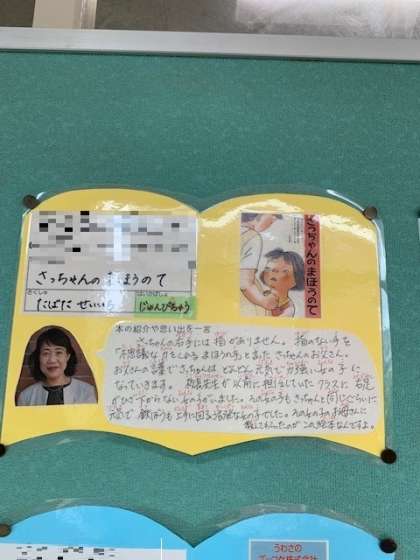 さっちゃんのまほうのて
さくしゃ
たばた せいいち
じゅんびちゅう
さっちゃんのまほうのて
本の紹介や思い出を一言
さっちゃんの右手には 指がありません。 指のない手を
「不思議な力をくれる まほうの手」と さっちゃんのお父さん。
お父さんの言葉で さっちゃんは、どんどん 元気で 力強い女の子に
なっていきます。 が以前に担任していたクラスに 右足
がひざ下からない女の子がいました。 その女の子も さっちゃんと同じくらいに
元気で 鉄ぼうも上手に回る活発な女の子でした。その女の子のお母さんに
教えてもらったのが この絵本なんですよ。
うわさの